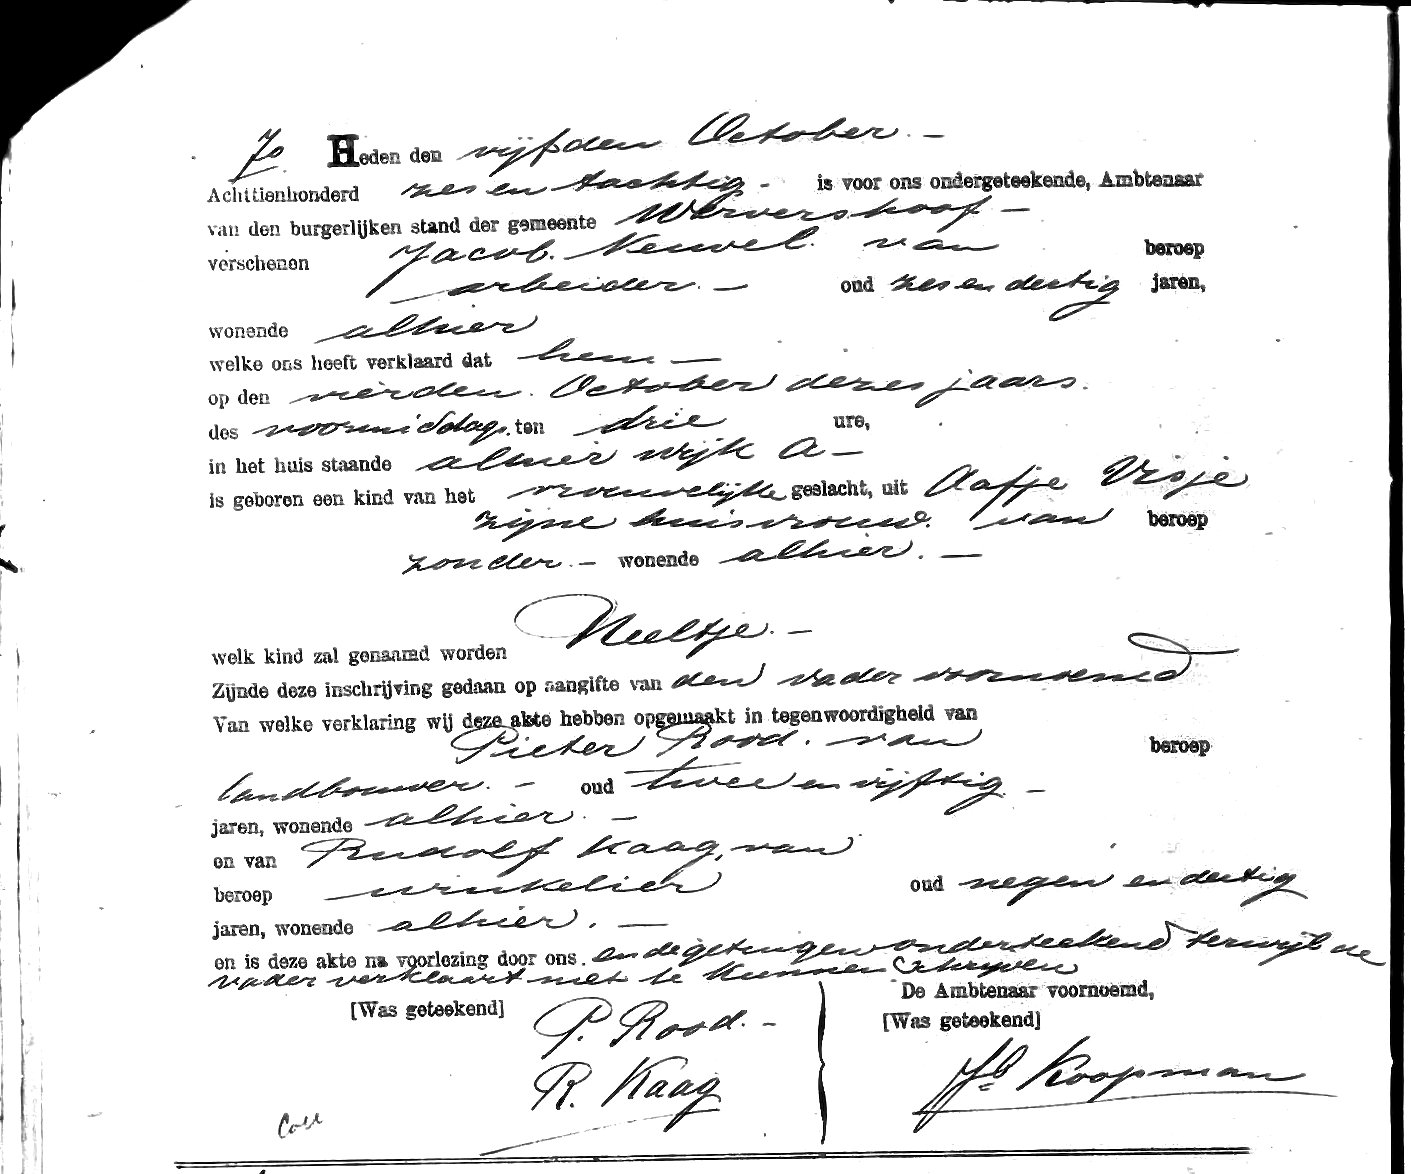 70 Heden den vijfden October. —
Achttienhonderd zes en tachtig - is voor ons ondergeteekende, Ambtenaar
van den burgerlijken stand der gemeente Wervershoof —
verschenen Jacob Neuvel van beroep
arbeider. — oud zes en dertig jaren,
wonende alhier
welke ons heeft verklaard dat hem —
op den vierden October dezes jaars.
des voormiddags. ten drie ure,
in het huis staande alhier wijk A —
is geboren een kind van het vrouwelijke geslacht, uit Aafje Visje
zijne huisvrouw. van beroep
zonder. — wonende alhier. —
welk kind zal genaamd worden Neeltje. —
Zijnde deze inschrijving gedaan op aangifte van den vader voornoemd
Van welke verklaring wij deze akte hebben opgemaakt in tegenwoordigheid van
Pieter Rood. van beroep
landbouwer. — oud twee en vijftig —
jaren, wonende alhier. —
en van Rudolf Kaag, van
beroep winkelier oud negen en dertig
jaren, wonende alhier. —
en is deze akte na voorlezing door ons. en de getuigen onderteekend terwijl de
vader verklaart niet te kunnen schrijven
De Ambtenaar voornoemd,
[Was geteekend] [Was geteekend]
P. Rood. —
R. Kaag Jb Koopman
Coll